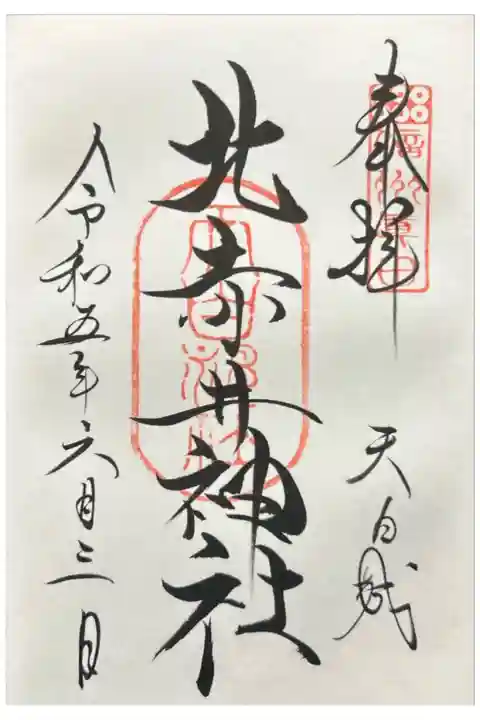 奉拝
天白城
北赤井神社
令和五年六月三日